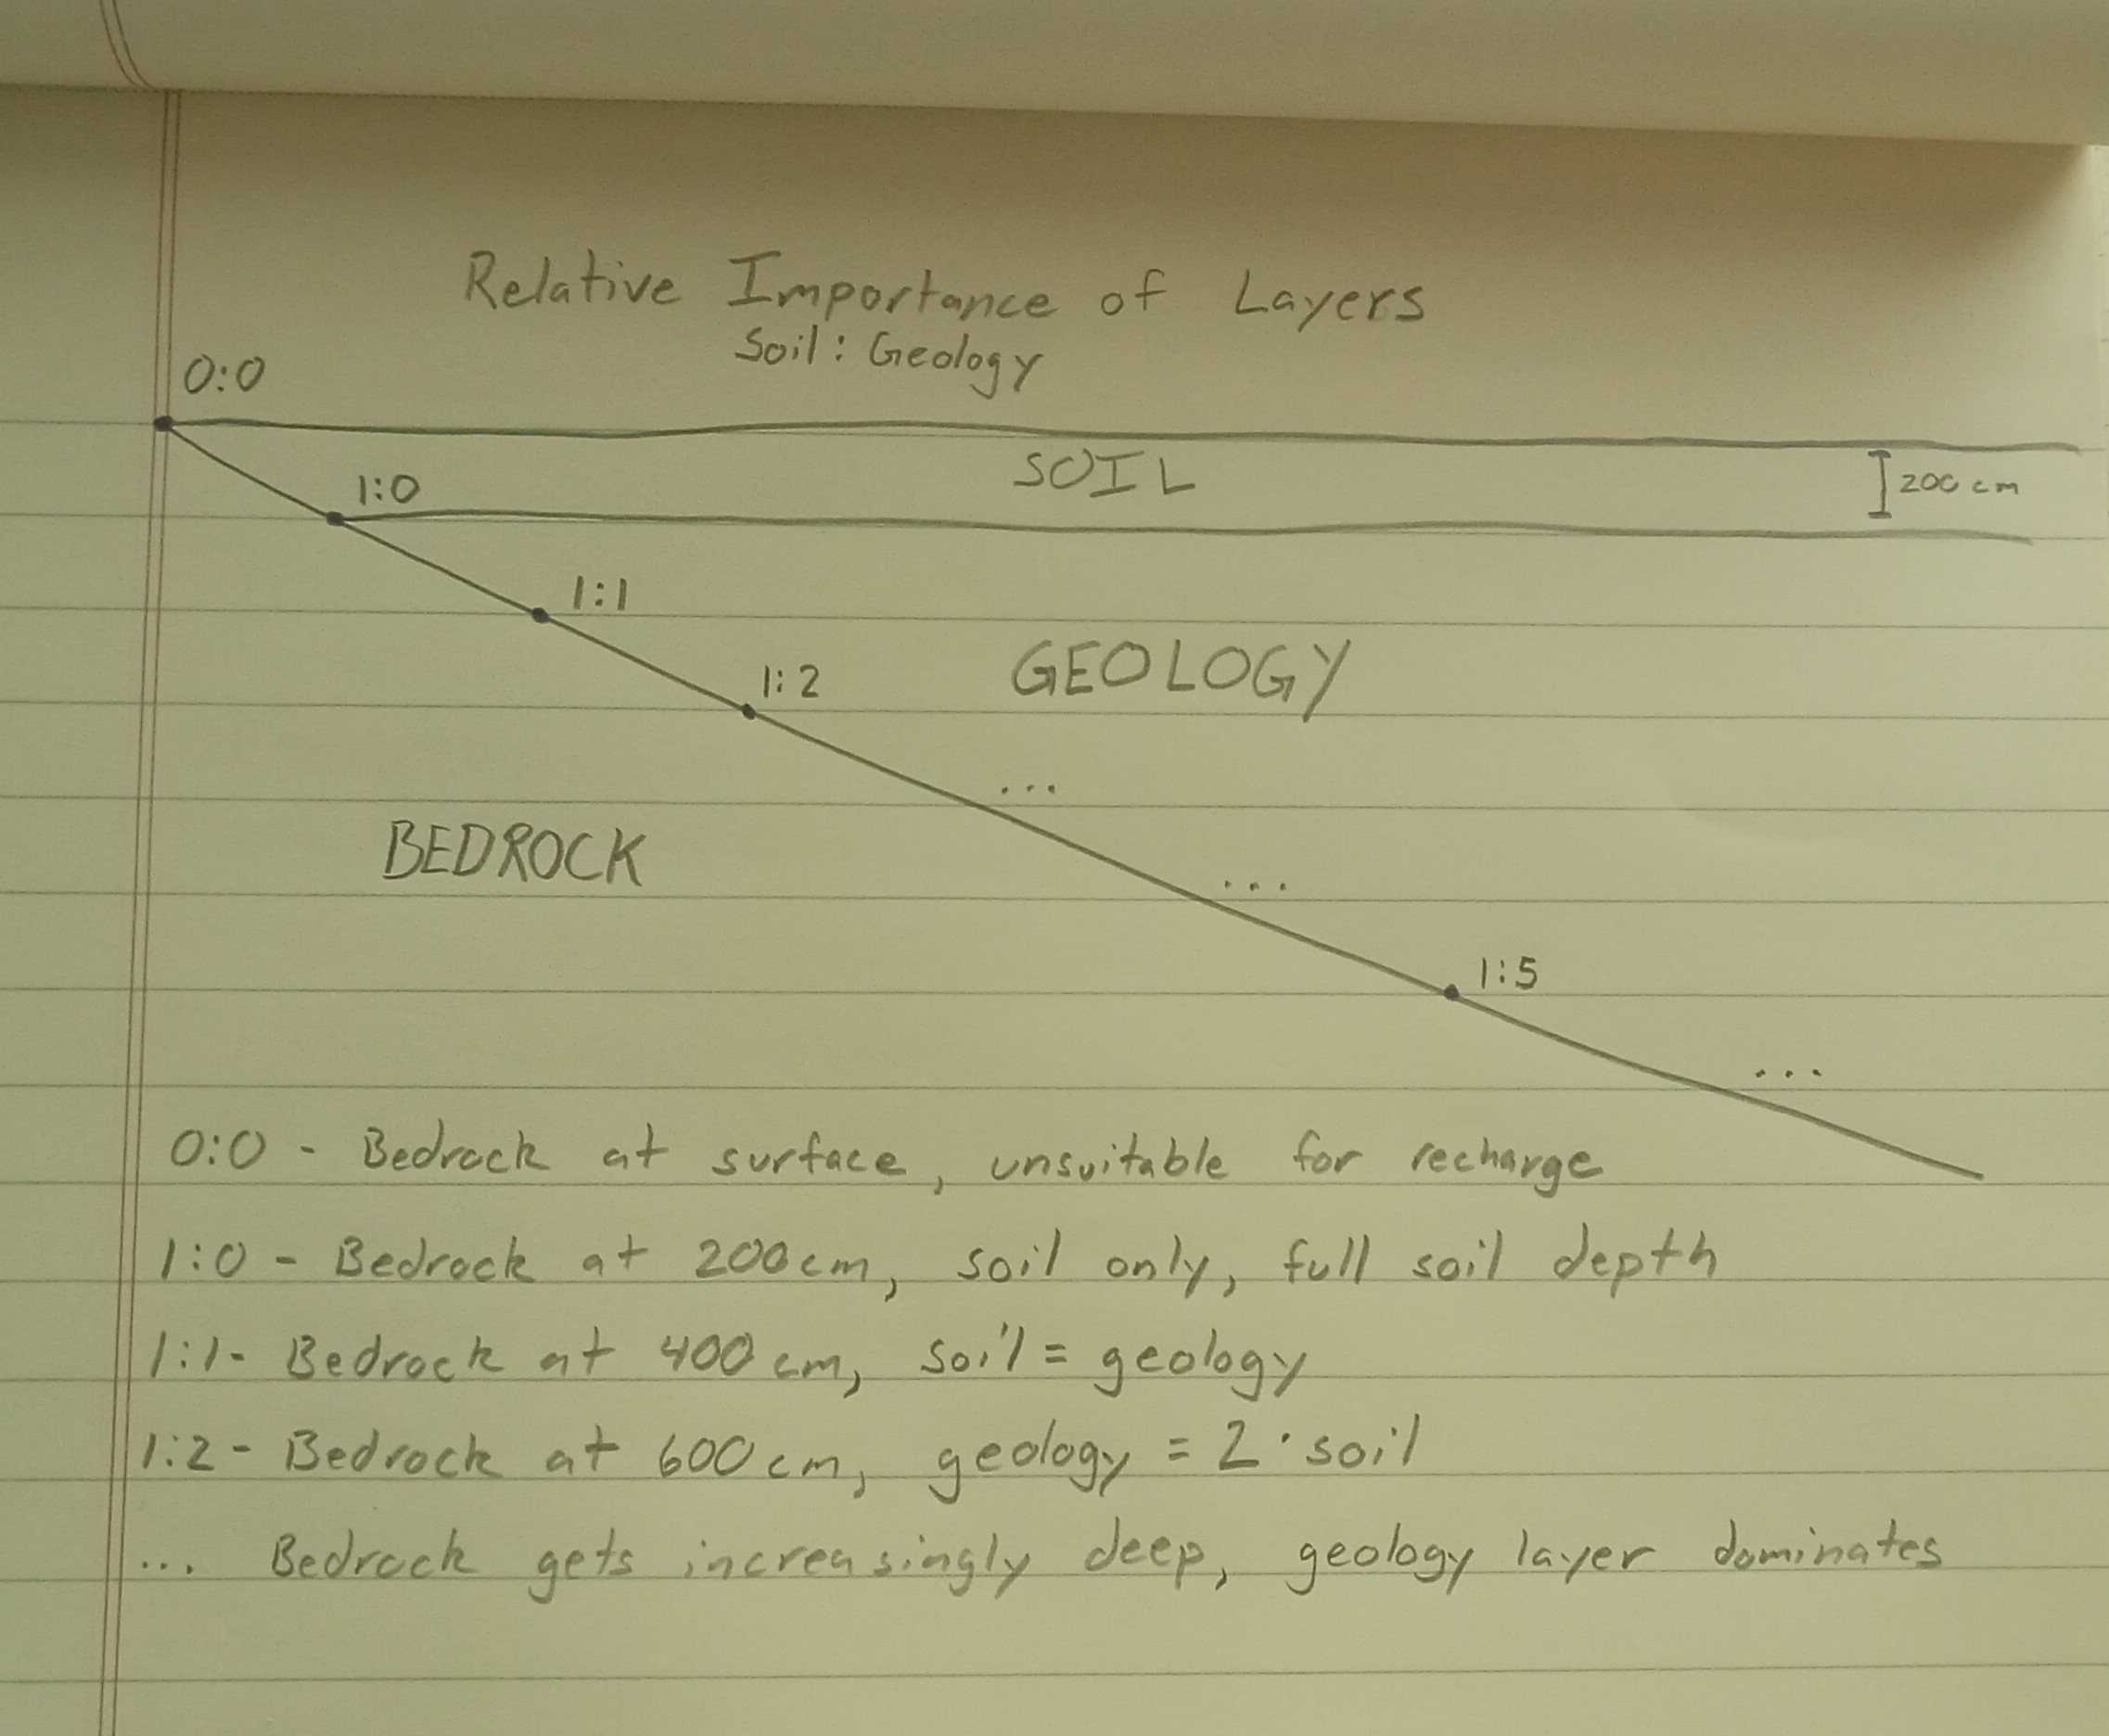 Relative Importance of Layers
Soil: Geology
0:0
SOIL
200 cm
1:0
1:1
GEOLOGY
1:2
...
BEDROCK
...
1:5
...
0:0 - Bedrock at surface, unsuitable for recharge
1:0 - Bedrock at 200cm, soil only, full soil depth
1:1- Bedrock at 400 cm, soil = geology
1:2 - Bedrock at 600 cm, geology = 2 · soil
... Bedrock gets increasingly deep, geology layer dominates